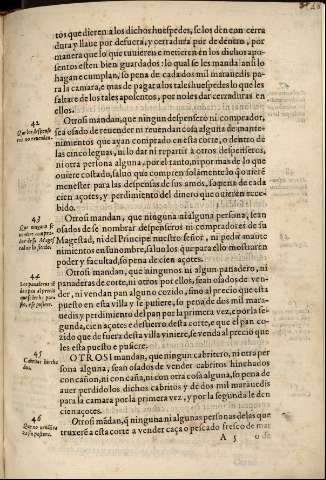 tos que dieren a los dichos huespedes, se los den con cerra
dura y llaue por defuera, y cerradura por de dentro, por
manera que lo que tuuieren e metieren en los dichos apo-
sentos esten bien guardados: lo qual se les manda ansi lo
hagan e cumplan, so pena de cada dos mil marauedis pa-
ra la camara, e mas de pagar a los tales huespedes lo que les
faltare de los tales aposentos, por no les dar cerraduras en
ellos.
42
Que los despense-
ros no reuendan.
Otrosi mandan, que ningun despensero ni comprador,
sea osado de reuender ni reuendan cosa alguna de mante-
nimientos que ayan comprado en esta corte, o dentro de
las cinco leguas, ni lo dar ni repartir a otros despenseros,
ni otra persona alguna, por el tanto, ni por mas de lo que
ouiere costado, saluo que compren solamente lo q̃ ouiere
menester para las despensas de sus amos, so pena de cada
cien açotes, y perdimiento del dinero que ouieren rece-
bido.
43
Que ninguno se
nombre compra-
dor de su Mages
tad no lo siendo.
Otrosi mandan, que ninguna ni alguna persona, sean
osados de se nombrar despenseros ni compradores de su
Magestad, ni del Principe nuestro señor, ni pedir mante
nimientos en su nombre, saluo los que para ello mostraren
poder y facultad, so pena de cien açotes.
44
Los panaderos vẽ
dan pan al precio
que se les ha pue
sto, e se pusiere.
Otrosi mandan, que ningunos ni algun panadero, ni
panaderas de corte, ni otros por ellos, sean osados de ven-
der, ni vendan pan alguno cozido, sino al precio que esta
puesto en esta villa y se pusiere, so pena de dos mil mara-
uedis y perdimiento del pan por la primera vez, e por la se-
gunda, cien açotes e destierro desta corte, e que el pan co-
zido que de fuera desta villa viniere, se venda al precio que
les esta puesto e pusiere.
45
Cabritos hincha
dos.
OTROSI mandan, que ningun cabritero, ni otra per
sona alguna, sean osados de vender cabritos hinchados
con cañon, ni con caña, ni con otra cosa alguna, so pena de
auer perdido los dichos cabritos y de dos mil marauedis
para la camara por la primera vez, y por la segunda le den
cien açotes.
46
Otrosi mãdan, q̃ ninguna ni algunas personas de las que
truxerẽ a esta corte a vender caça o pescado fresco de mar
A 5
o de